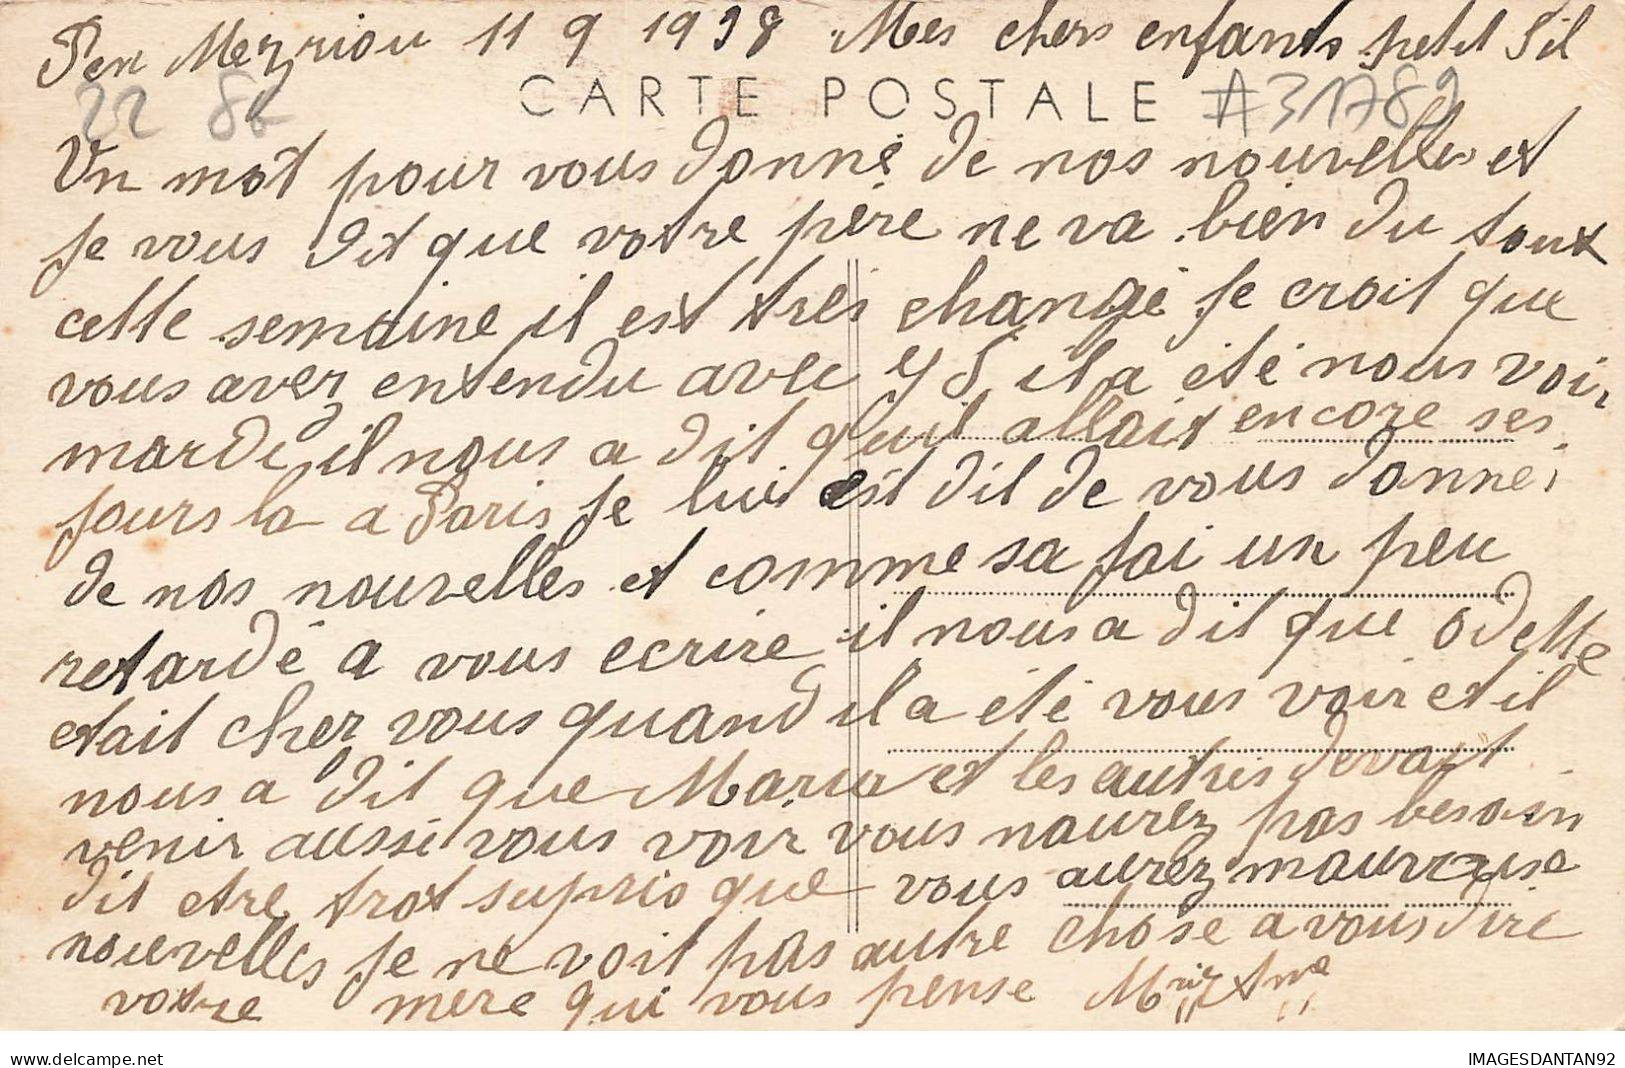 Pen Mezriou 11 9 1938 Mes chers enfants petit fil
22 8k CARTE POSTALE #31789
Un mot pour vous donné de nos nouvelles et
je vous dit que votre père ne va bien du tout
cette semaine il est très changé je croit que
vous avez entendu avec Y S il a été nous voir
mardi il nous a dit qu'il allait encore ses
jours la a Paris je lui est dit de vous donner
de nos nouvelles et comme sa jai un peu
retardé a vous ecrire il nous a dit que Odette
etait cher vous quand il a été vous voir et il
nous a dit que Maria et les autres devait
venir aussi vous voir vous naurez pas besoin
dit etre trot supris que vous aurez mauvaise
nouvelles je ne voit pas autre chose a vous dire
votre mere qui vous pense
IMAGESDANTAN92